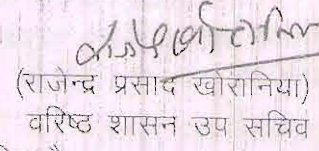 (राजेन्द्र प्रसाद खोरानिया)
वरिष्ठ शासन उप सचिव